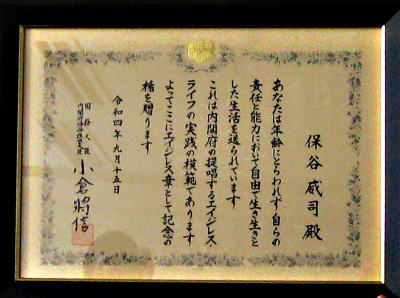 保谷威司殿
あなたは年齢にとらわれず 自らの
責任と能力において自由で生き生きと
した生活を送られています
これは内閣府の提唱するエイジレス・
ライフの実践の模範であります
よってここにエイジレス章として記念の
楯を贈ります
令和四年九月十五日
国務大臣
小倉將信